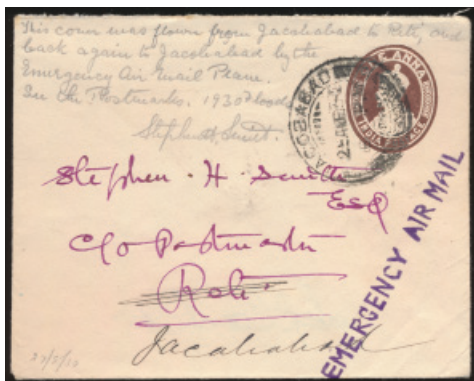 This cover was flown from Jacobabad to Reti, and
back again to Jacobabad by the
Emergency Air Mail Plane.
See the Postmarks. 1930 Floods
Stephen H. Smith.
ANNA
JACOBABAD
Stephen. H. Smith
Esq
c/o Postmaster
Reti
Jacobabad
EMERGENCY AIR MAIL